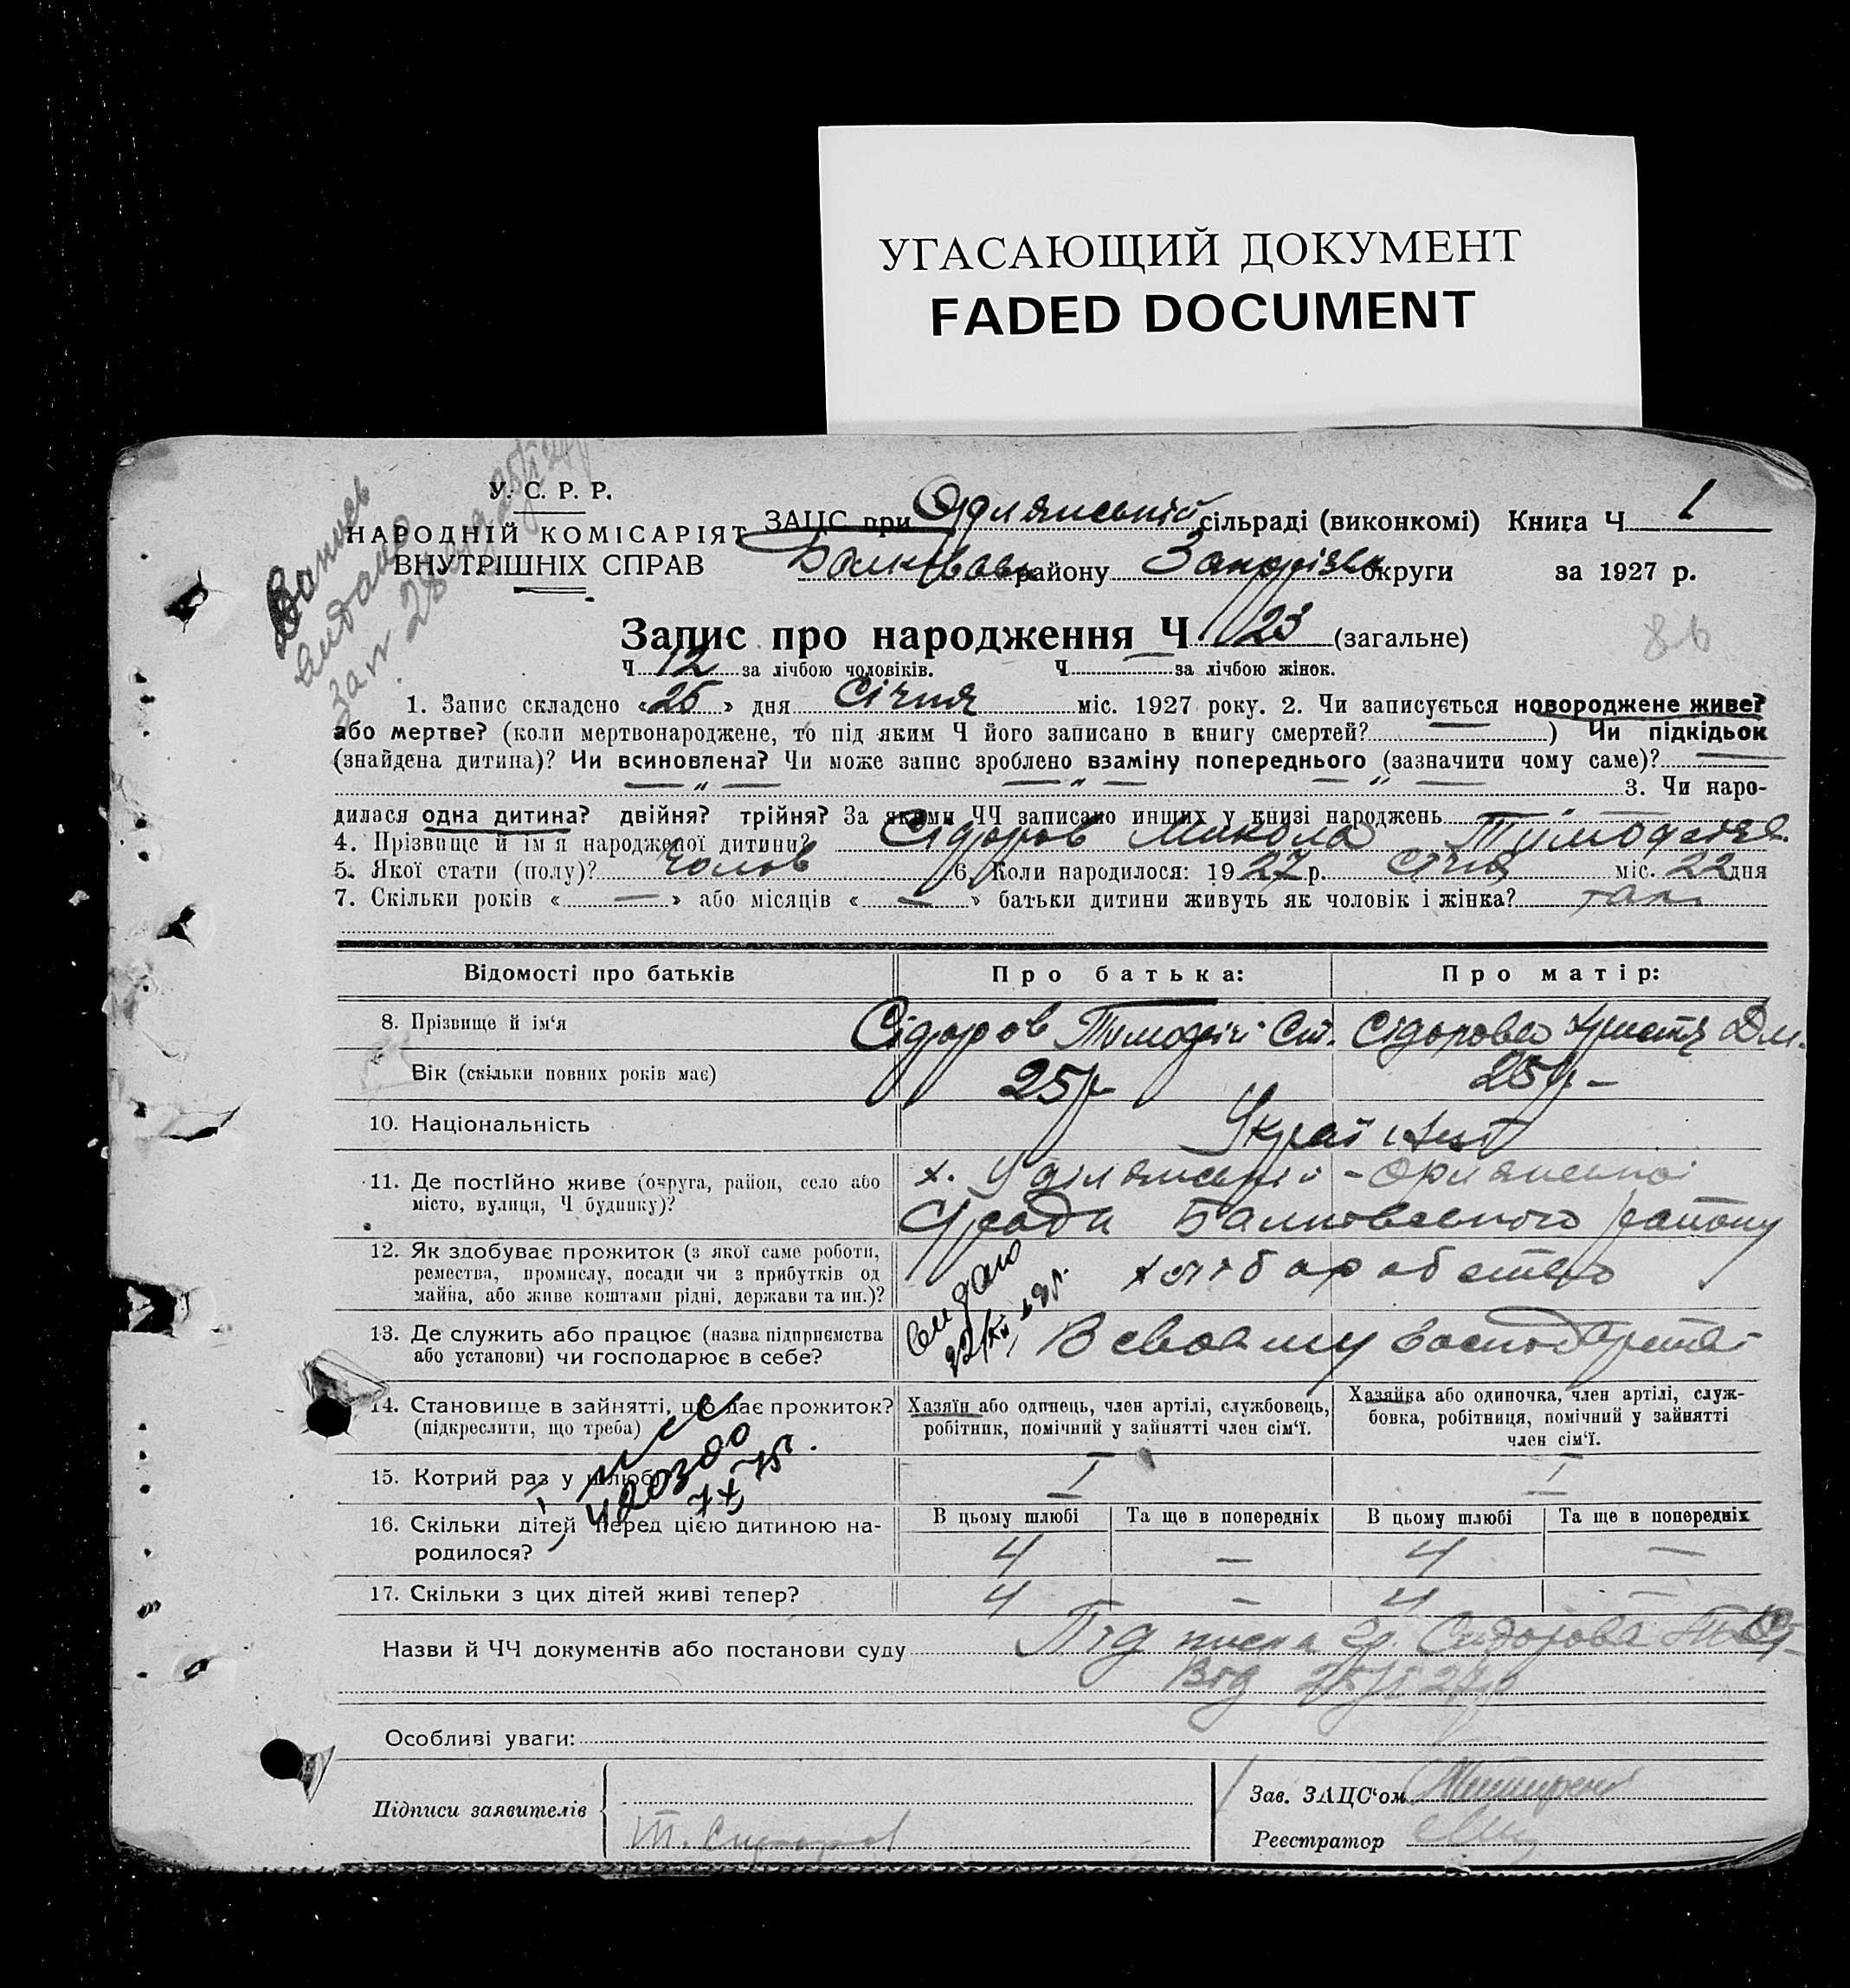 УГАСАЮЩИЙ ДОКУМЕНТ
FADED DOCUMENT
У. С. Р. Р.
НАРОДНІЙ КОМІСАРІЯТ
ВНУТРІШНІХ СПРАВ
ЗАЦС при сільраді (виконкомі) Книга Ч 1
району Запоріськ округи за 1927 р.
Запис про народження Ч 23 (загальне)
86
Ч 12 за лічбою чоловіків. Ч — за лічбою жінок.
1. Запис складено «25» дня Січня міс. 1927 року. 2. Чи записується новороджене живе?
або мертве? (коли мертвонароджене, то під яким Ч його записано в книгу смертей? — ) Чи підкідьок
(знайдена дитина)? Чи всиновлена? Чи може запис зроблено взаміну попереднього (зазначити чому саме)? —
— „ — — „ — — „ — 3. Чи наро-
дилася одна дитина? двійня? трійня? За якими ЧЧ записано инших у книзі народжень
4. Прізвище й ім'я народженої дитини? Сідоров Микола
5. Якої стати (полу)? Чолов 6. Коли народилося: 1927 р. Січня міс. 22 дня
7. Скільки років « — » або місяців « — » батьки дитини живуть як чоловік і жінка? так
Відомості про батьків Про батька: Про матір:
8. Прізвище й ім'я Сідоров Тимофій Ст. Сідорова Христя Дм.
Вік (скільки повних років має) 25р 25р –
10. Національність
11. Де постійно живе (округа, район, село або
місто, вулиця, Ч будинку)?
х.
С/ради Балковського району
12. Як здобуває прожиток (з якої саме роботи,
ремества, промислу, посади чи з прибутків од
майна, або живе коштами рідні, держави та ин.)?
хліборобство
13. Де служить або працює (назва підприємства
або установи) чи господарює в себе?
В своему
14. Становище в зайнятті, що дає прожиток?
(підкреслити, що треба)
Хазяїн або одинець, член артілі, службовець,
робітник, помічний у зайнятті член сім'ї.
Хазяйка або одиночка, член артілі, служ-
бовка, робітниця, помічний у зайнятті
член сім'ї.
15. Котрий раз у шлюбі I I
16. Скільки дітей перед цією дитиною на-
родилося?
В цьому шлюбі Та ще в попередніх В цьому шлюбі Та ще в попередніх
4 — 4 —
17. Скільки з цих дітей живі тепер? 4 — 4 —
Назви й ЧЧ документів або постанови суду Підписка гр. Сидорова
Від 25/I 27р
Особливі уваги:
Підписи заявителів
Т. Сидоров
Зав. ЗАЦС'ом
Реєстратор